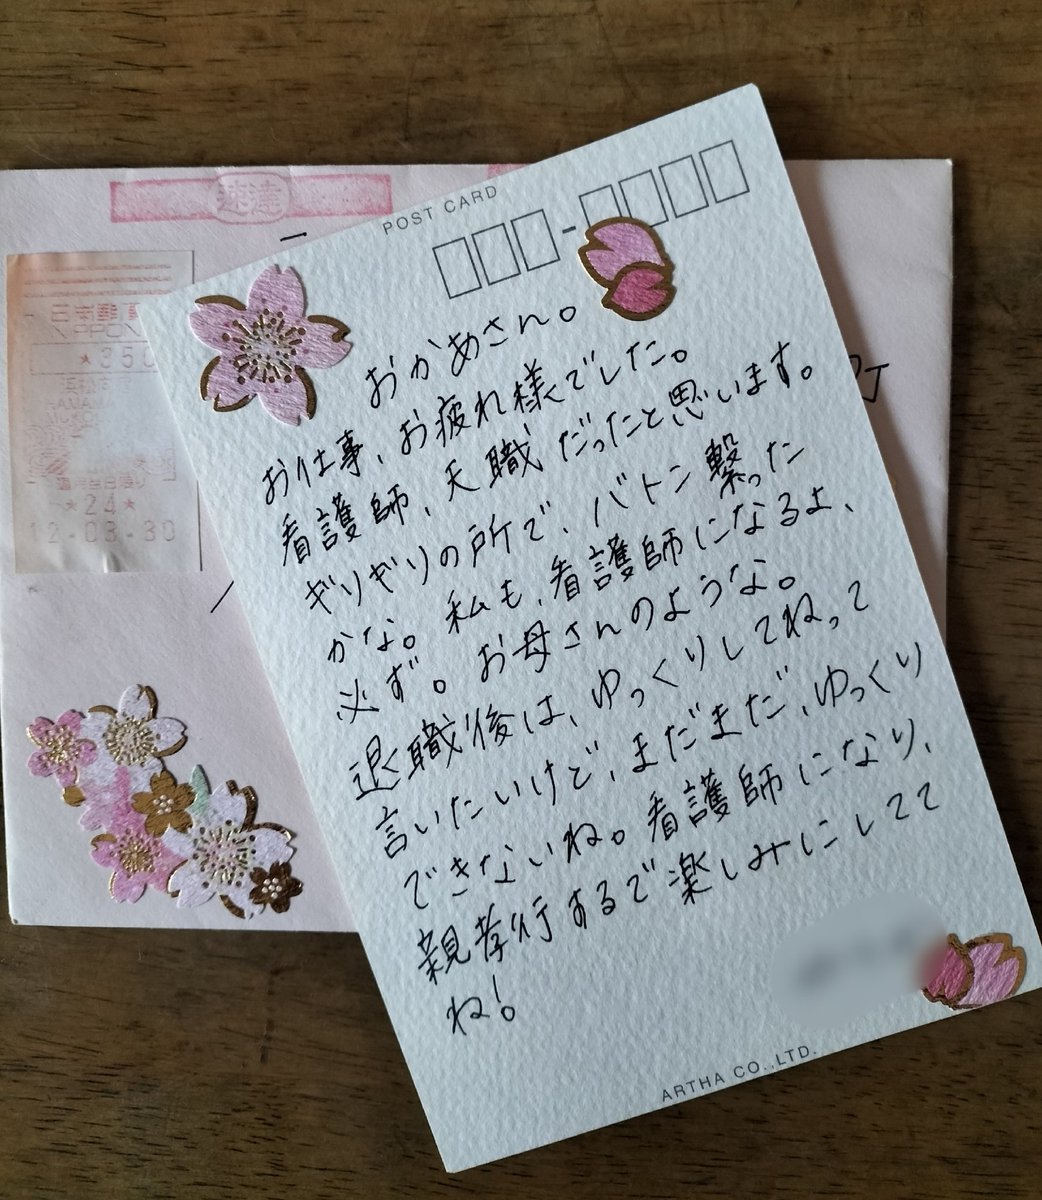 速達
日本郵便
NIPPON
*350
*24*
12-03-30
POST CARD
おかあさん。
お仕事、お疲れ様でした。
看護師、天職だったと思います。
ギリギリの所で、バトン繋った
かな。私も、看護師になるよ、
必ず。お母さんのような。
退職後は、ゆっくりしてねって
言いたいけど、まだまだ、ゆっくり
できないね。看護師になり、
親孝行するで楽しみにしてて
ね!
ARTHA CO.,LTD.